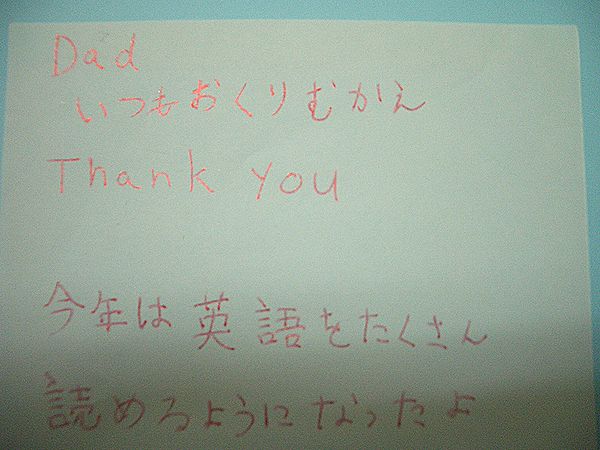 Dad
いつもおくりむかえ
Thank you
今年は英語をたくさん
読めるようになったよ